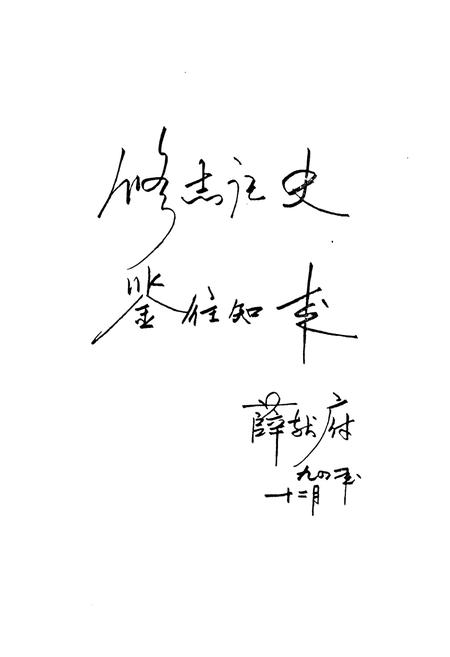 修志记史
鉴往知来
薛 府
九 年
十二月